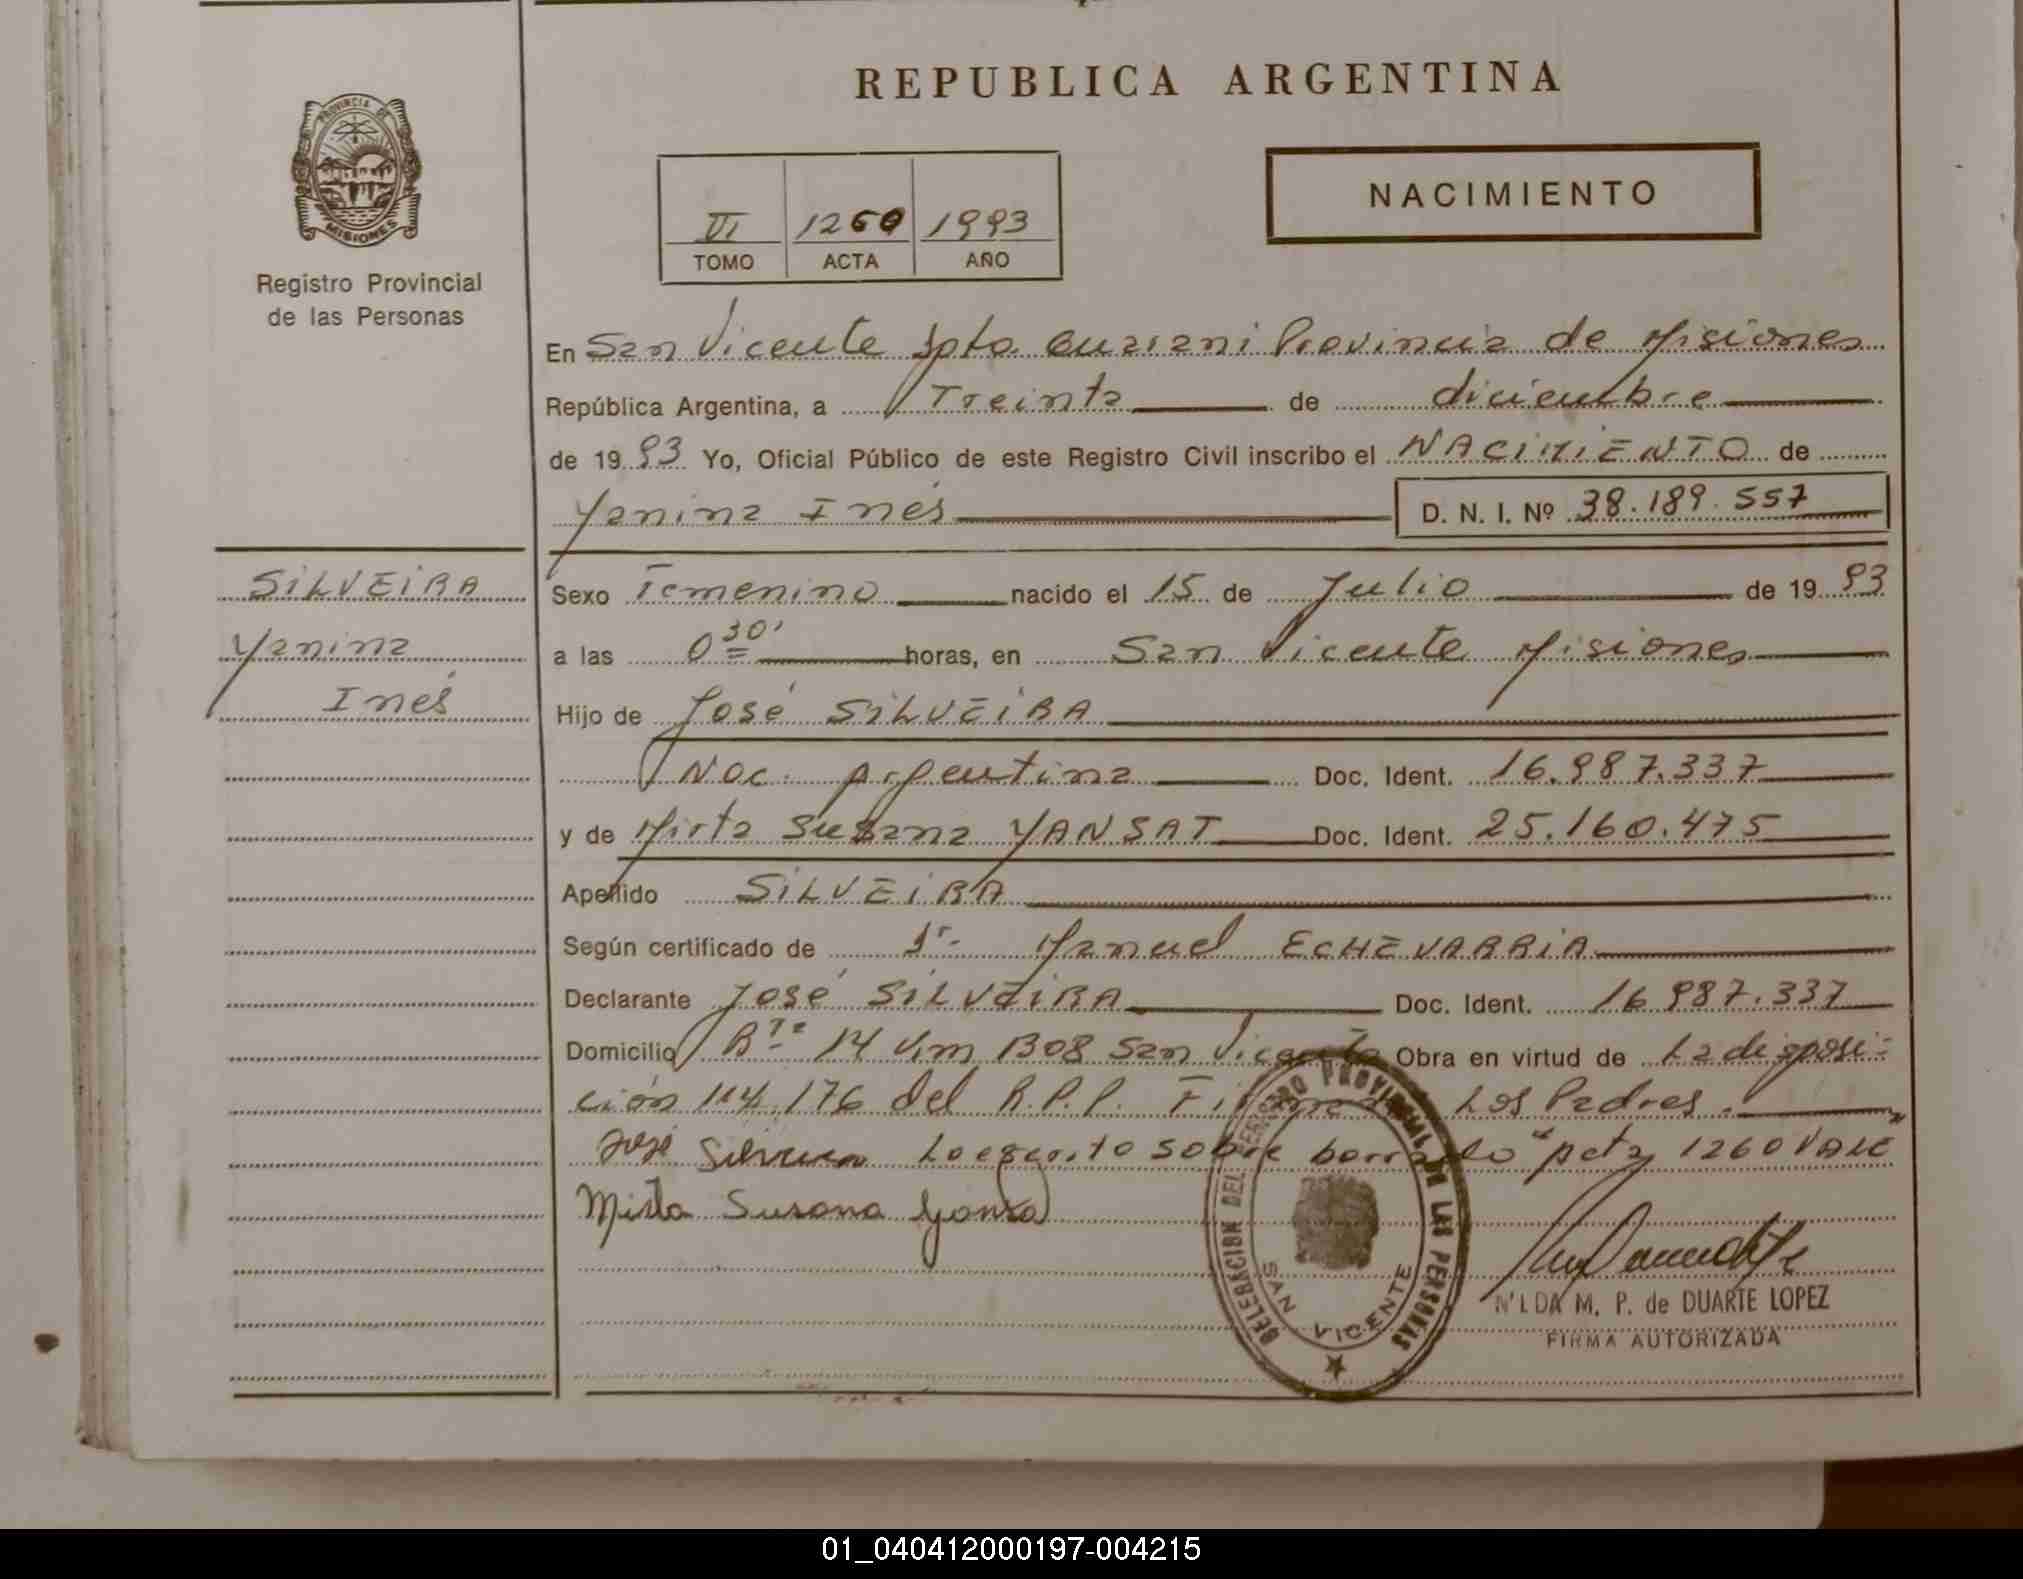 REPUBLICA ARGENTINA
PROVINCIA DE
MISIONES
Registro Provincial
de las Personas
NACIMIENTO
VI 1260 1993
TOMO ACTA AÑO
En San Vicente Dpto Guaraní Provincia de Misiones
República Argentina, a Treinta de diciembre
de 1993 Yo, Oficial Público de este Registro Civil inscribo el NACIMIENTO de
Yanina Inés D. N. I. Nº 38.189.557
SILVEIRA
Yanina
Inés
Sexo Femenino nacido el 15 de Julio de 1993
a las 0 30' horas, en San Vicente Misiones
Hijo de José SILVEIRA
Nac. Argentina Doc. Ident. 16.987.337
y de Mirta Susana YANSAT Doc. Ident. 25.160.475
Apellido SILVEIRA
Según certificado de Dr. Manuel ECHEVARRIA
Declarante José SILVEIRA Doc. Ident. 16.987.337
Domicilio 14 Km 1308 San Vicente Obra en virtud de La disposi-
ción 114/176 del R.P.P. Los Padres.
José Silveira Lo escrito sobre borrado "Acta 1260" VALE
Mirta Susana
DELEGACION DEL REGISTRO PROVINCIAL DE LAS PERSONAS
SAN VICENTE
NILDA M. P. de DUARTE LOPEZ
FIRMA AUTORIZADA
01_040412000197-004215